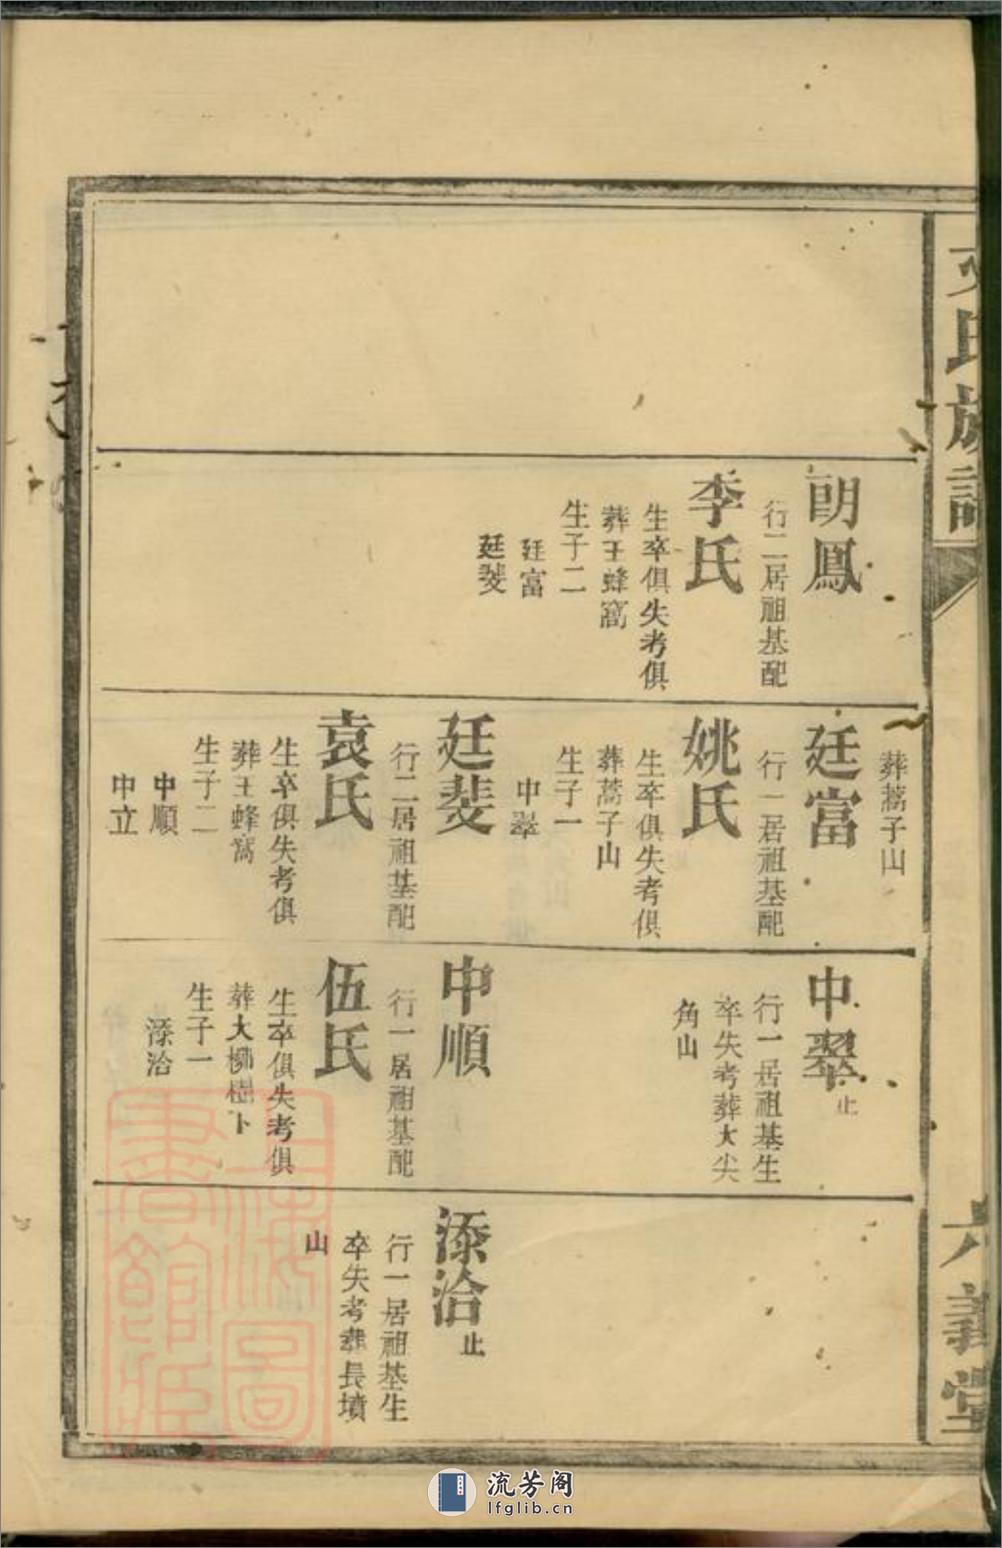 文氏族譜
六義堂
朗鳳
行二居祖基配
李氏
生卒俱失考俱
葬王蜂窩
生子二
廷富
廷斐
葬蒿子山
廷富
行一居祖基配
姚氏
生卒俱失考俱
葬蒿子山
生子一
中翠
廷斐
行二居祖基配
袁氏
生卒俱失考俱
葬王蜂窩
生子二
中順
中立
中翠止
行一居祖基生
卒失考葬大尖
角山
中順
行一居祖基配
伍氏
生卒俱失考俱
葬大柳樹下
生子一
添洽
添洽止
行一居祖基生
卒失考葬長墳
山
上海圖書館藏
流芳阁
lfglib.cn